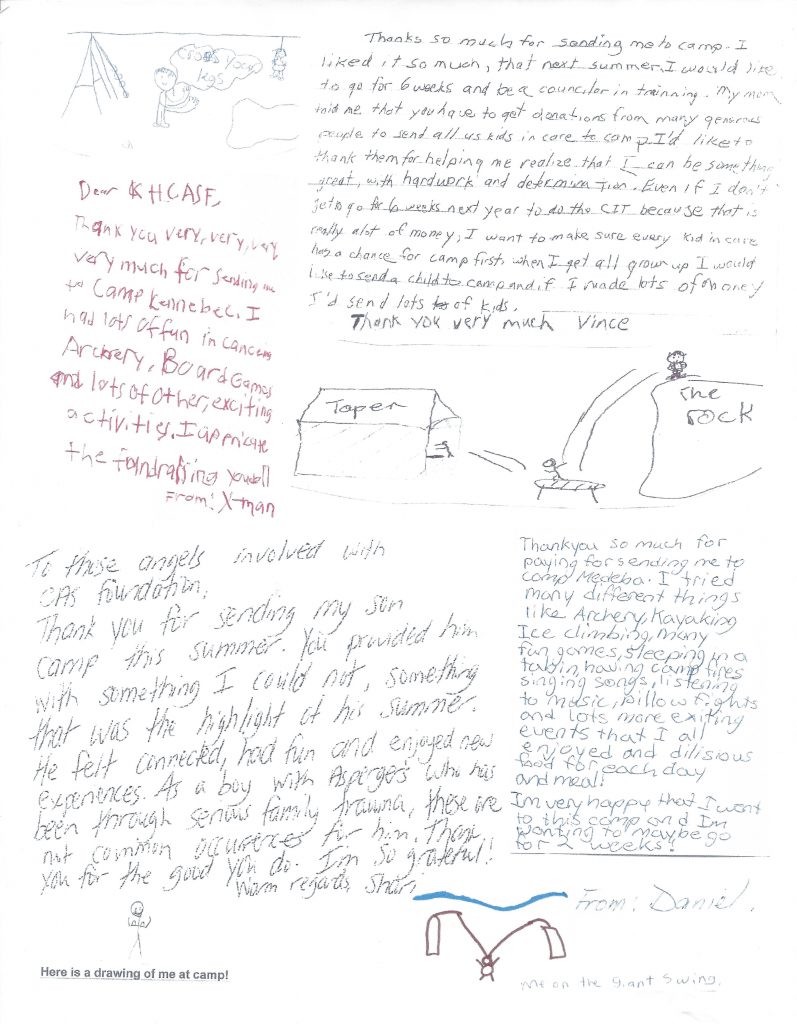 cross your
legs
Thanks so much for sending me to camp. I
liked it so much, that next summer, I would like
to go for 6 weeks and be a councilor in trainning. My mom
told me that you have to get donations from many generous
people to send all us kids in care to camp. I'd like to
thank them for helping me realize that I can be something
great, with hardwork and determination. Even if I don't
get to go for 6 weeks next year to do the CIT because that is
really alot of money, I want to make sure every kid in care
has a chance for camp first. when I get all grow up I would
like to send a child to camp and if I made lots of money
I'd send lots of kids.
Thank you very much Vince
Dear KHCASF,
Thank you very, very, very
very much for sending me
to Camp Kennebec. I
had lots of fun in
Archery, Board Games
and lots of other, exciting
activities. I
the you all
From: X-man
Taper
The
rock
To those angels involved with
CAS foundation,
Thank you for sending my son
camp this summer. You provided him
with something I could not, something
that was the highlight of his summer.
He felt connected, had fun and enjoyed new
experiences. As a boy with Aspergers who has
been through serious family trauma, these are
not common occurences for him. Thank
you for the good you do. I'm so grateful!
Warm regards, Shari
Thankyou so much for
paying for sending me to
camp Medeba. I tried
many different things
like Archery, Kayaking
Ice climbing, many
fun games, sleeping in a
having camp fires
singing songs, listening
to music, pillow fights
and lots more exiting
events that I all
enjoyed and dilisious
food for each day
and meal!
Im very happy that I went
to this camp and Im
wanting to maybe go
for 2 weeks!
From: Daniel.
Here is a drawing of me at camp!
me on the giant swing.